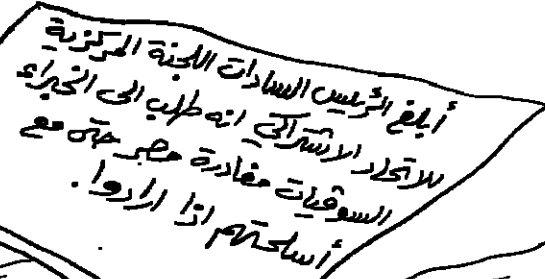 أبلغ الرئيس السادات اللجنة المركزية
للاتحاد الاشتراكي انه طلب الى الخبراء
السوفيات مغادرة مصر حتى مع
أسلحتهم اذا ارادوا.